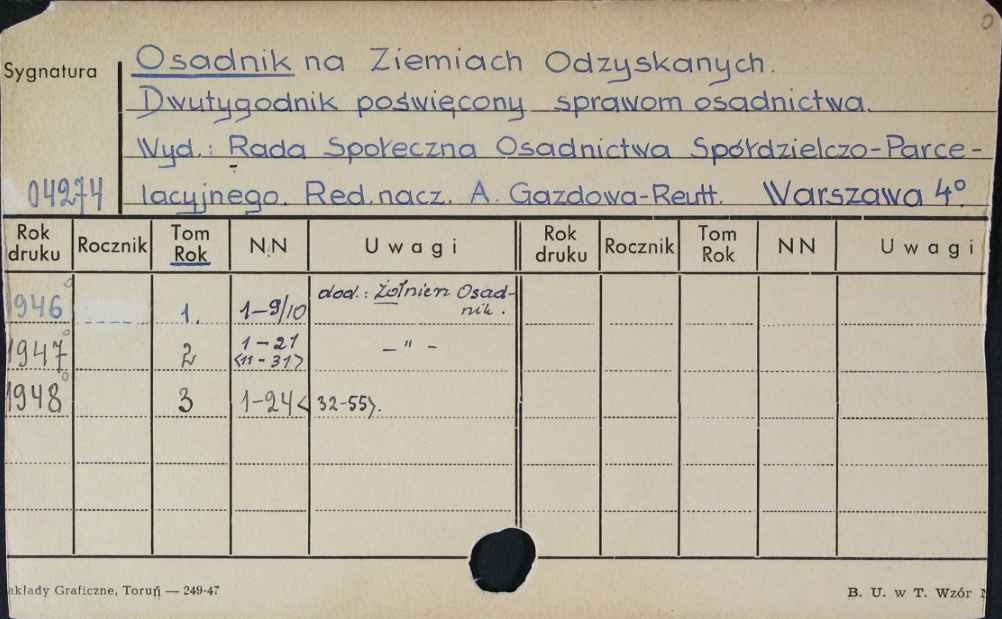 Osadnik na Ziemiach Odzyskanych.
Sygnatura
Dwutygodnik poświęcony sprawom osadnictwa.
Wyd.: Rada Społeczna Osadnictwa Spółdzielczo-Parce-
04274 lacyjnego. Red. nacz. A. Gazdowa-Reutt. Warszawa 4°.
Rok druku Rocznik Tom Rok NN Uwagi Rok druku Rocznik Tom Rok NN Uwagi
1946 1. 1-9/10 dod.: Żołnierz Osad-
nik.
1947 2 1-21 <11-31> -"-
1948 3 1-24 <32-55>.
akłady Graficzne, Toruń — 249-47 B. U. w T. Wzór